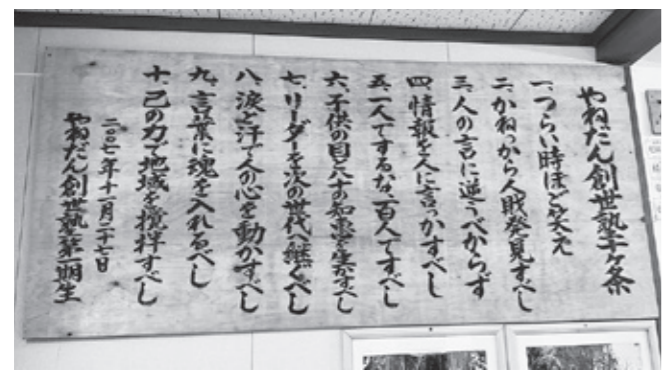 やねだん創世塾十ケ条
一、つらい時ほど笑え
二、かねっから人財発見すべし
三、人の言に逆うべからず
四、情報を人に言っかすべし
五、一人でするな百人ですべし
六、子供の目と八十の知恵を生かすべし
七、リーダーを次の世代へ継ぐべし
八、涙と汗で人の心を動かすべし
九、言葉に魂を入れるべし
十、己の力で地域を攪拌すべし
二〇〇七年十一月二十七日
やねだん創世塾第一期生